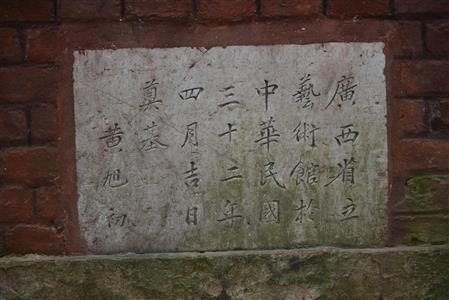 廣西省立
藝術館於
中華民國
三十二年
四月吉日
奠基
黃旭初